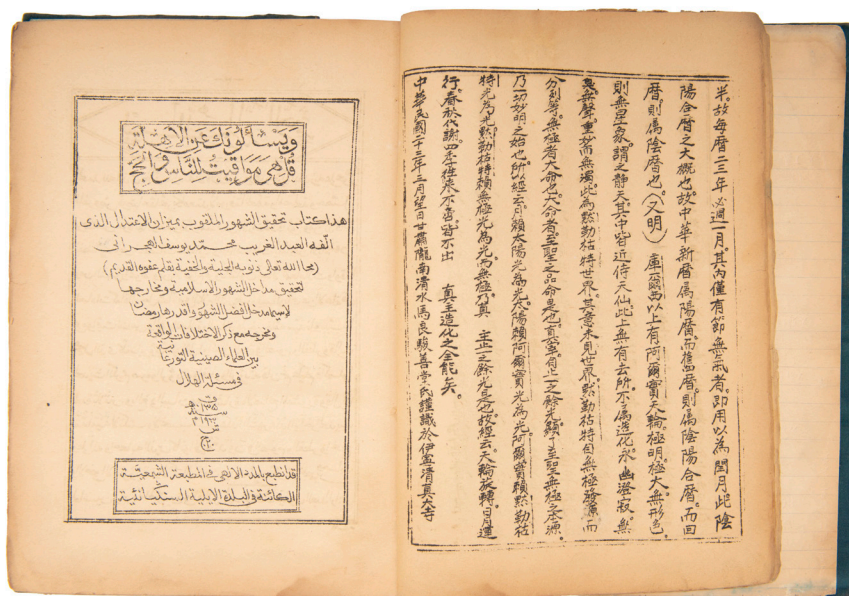 半。故每曆二三年必過一月。其內僅有節無氣者。即用以為閏月此陰
陽合曆之大概也。故中華新曆屬陽曆。而舊曆。則屬陰陽合曆。而回
曆。則屬陰曆也。(又明) 庫爾西以上有阿爾實天輪。極明極大。無形色。
則無星象。謂之靜天其中皆近侍天仙。此上無有去所。不屬造化永。幽澄寂。無
臭無聲。重妙而無濁。此為默勒枯特世界。其意未見世界。默勒枯特自無極發顯而
分列等。無極者大命也。大命者至聖之品命是也。真宰自止一之餘光。顯于至聖無極之本源。
乃一切妙明之始也。所以經云。月賴太陽光為光。太陽賴阿爾實光為光。阿爾實賴默勒枯
特光為光。默勒枯特賴無極光為光。而無極乃真 主止一之餘光是也。故經云。天輪旋轉。日月運
行。春秋代謝。四季往來。不皆不出 真主造化之全能矣。
中華民國二十三年三月望日甘肅隴南清水馬良駿善堂氏謹識於伊寧清真大寺
ويسألونك عن الأهلة
قل هي مواقيت للناس والحج
هذا كتاب تحقيق الشهور الملقوب بميزان الاعتدال الذى
الفه العبد الغريب محمد يوسف الهجرانى
(محا الله تعالى ذنوبه الجلية والخفية بقلم عفوه القديم)
لتحقيق مداخل الشهور الاسلامية ومخارجها
لاسيما مدخل افضل الشهور واقدرها رمضان
ومخرجه مع ذكر الاختلافات الواقعة
بين العلماء الصينية
فى مسئلة الهلال
قد انطبع بالمدد الالهى فى المطبعة
الكائنة فى البلدة الايلية السنكيانية